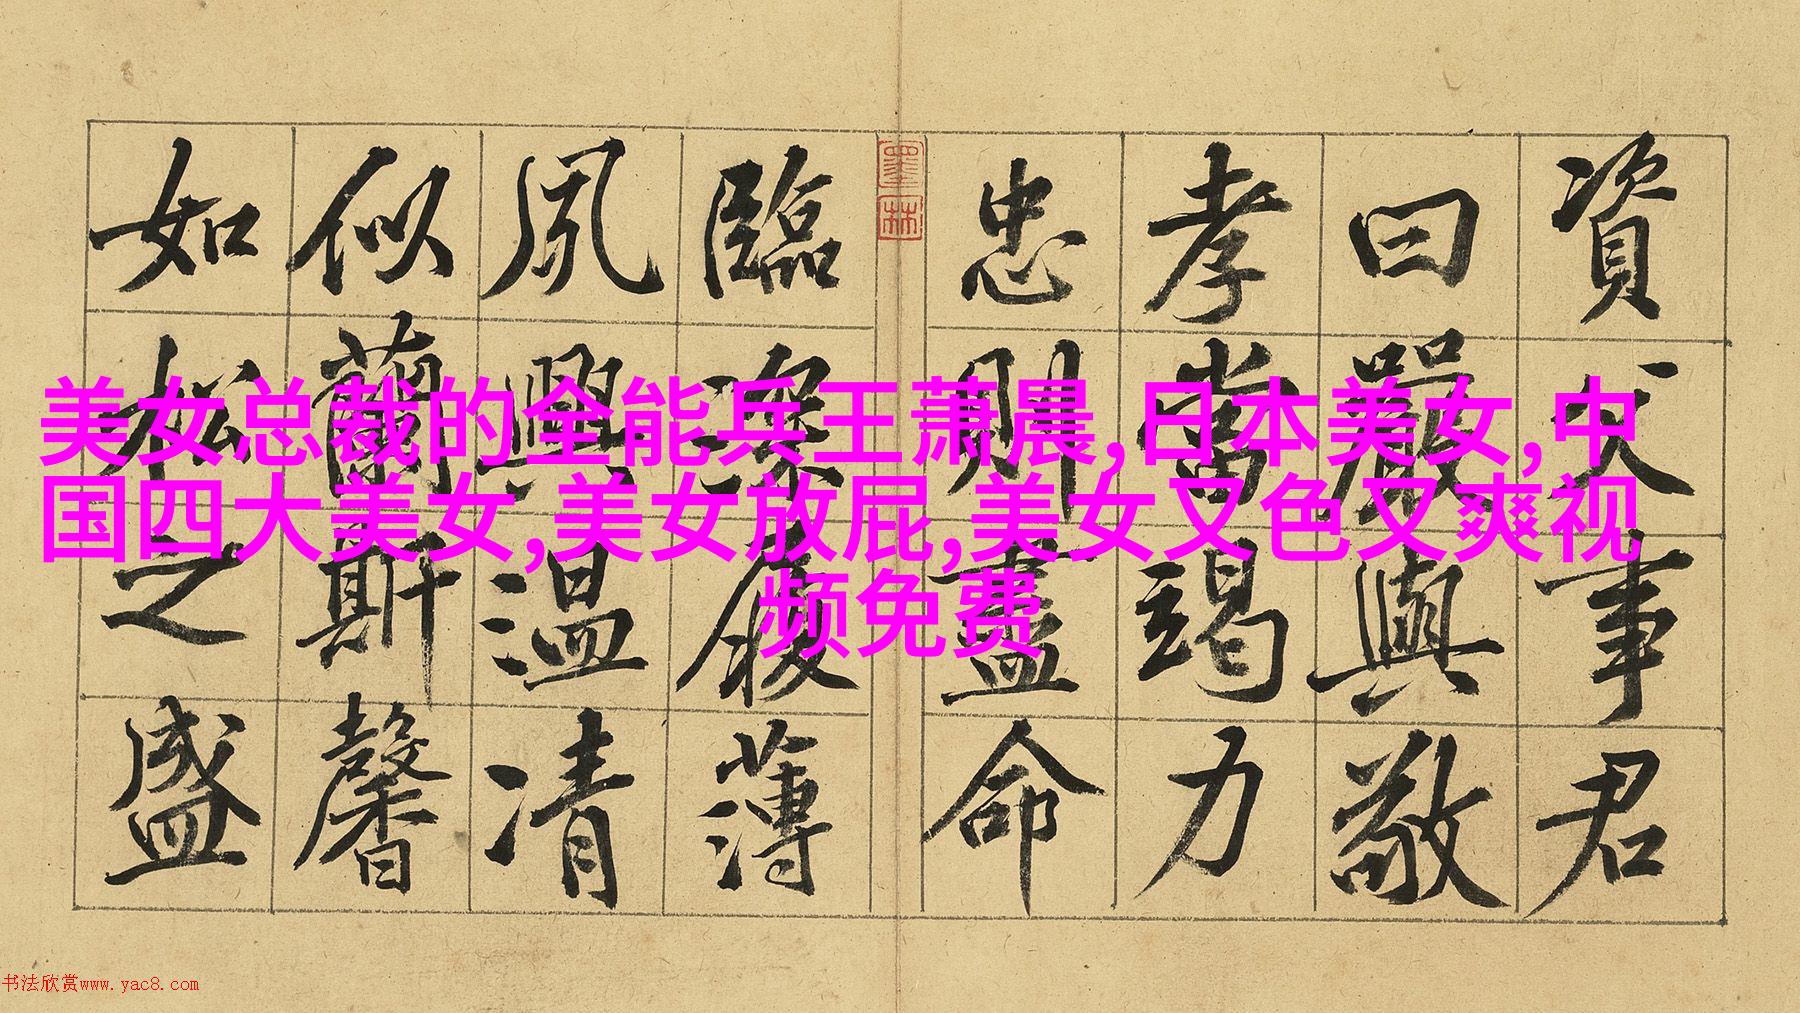 資父事君
曰嚴與敬
孝當竭力
忠則盡命
墨林
臨深履薄
夙興温凊
似蘭斯馨
如松之盛
美女总裁的全能兵王萧晨,日本美女,中
国四大美女,美女放屁,美女又色又爽视
频免费
书法欣赏www.yac8.com